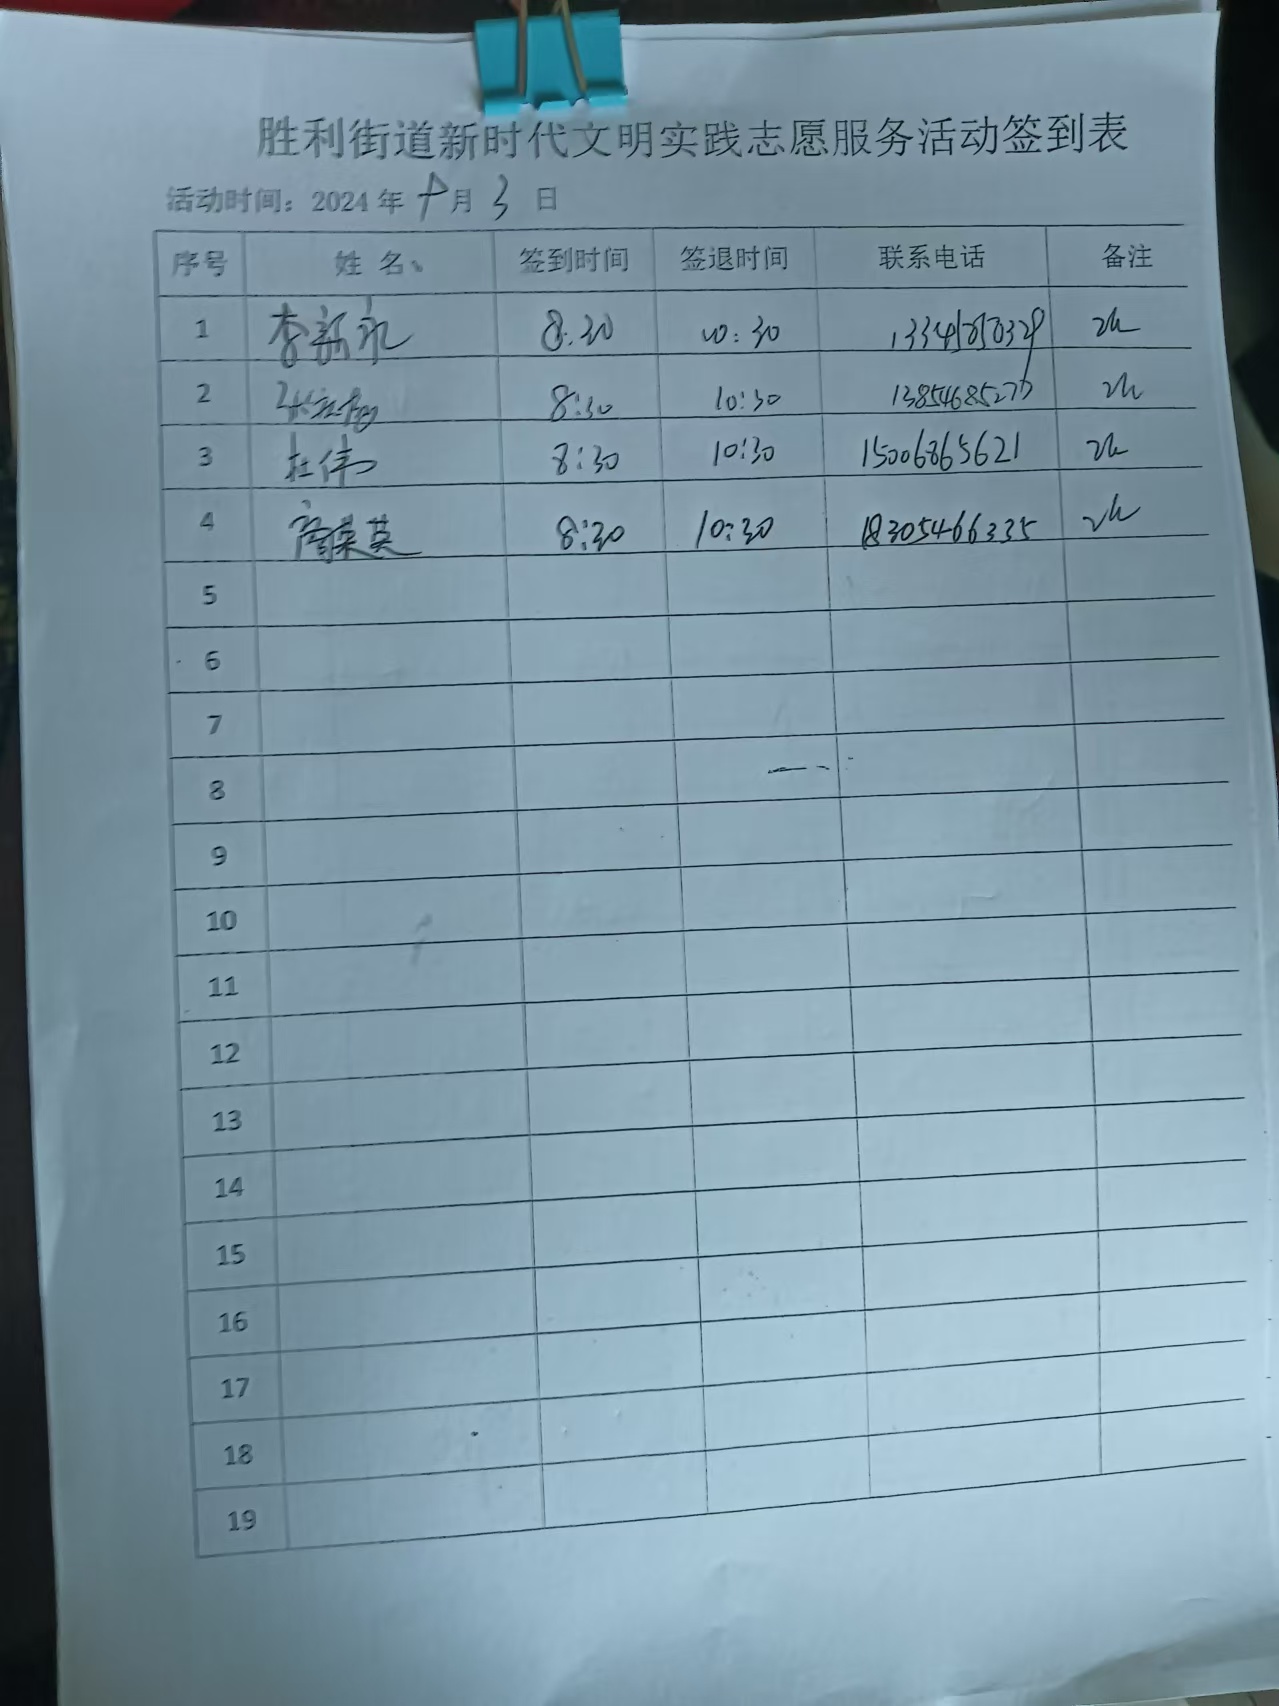 胜利街道新时代文明实践志愿服务活动签到表
活动时间：2024年 月 3 日
序号 姓名 签到时间 签退时间 联系电话 备注
1 李新永 8:30 10:30 2h
2 8:30 10:30 2h
3 杜伟 8:30 10:30 15006865621 2h
4 荣英 8:30 10:30 18305466335 2h
5
6
7
8
9
10
11
12
13
14
15
16
17
18
19